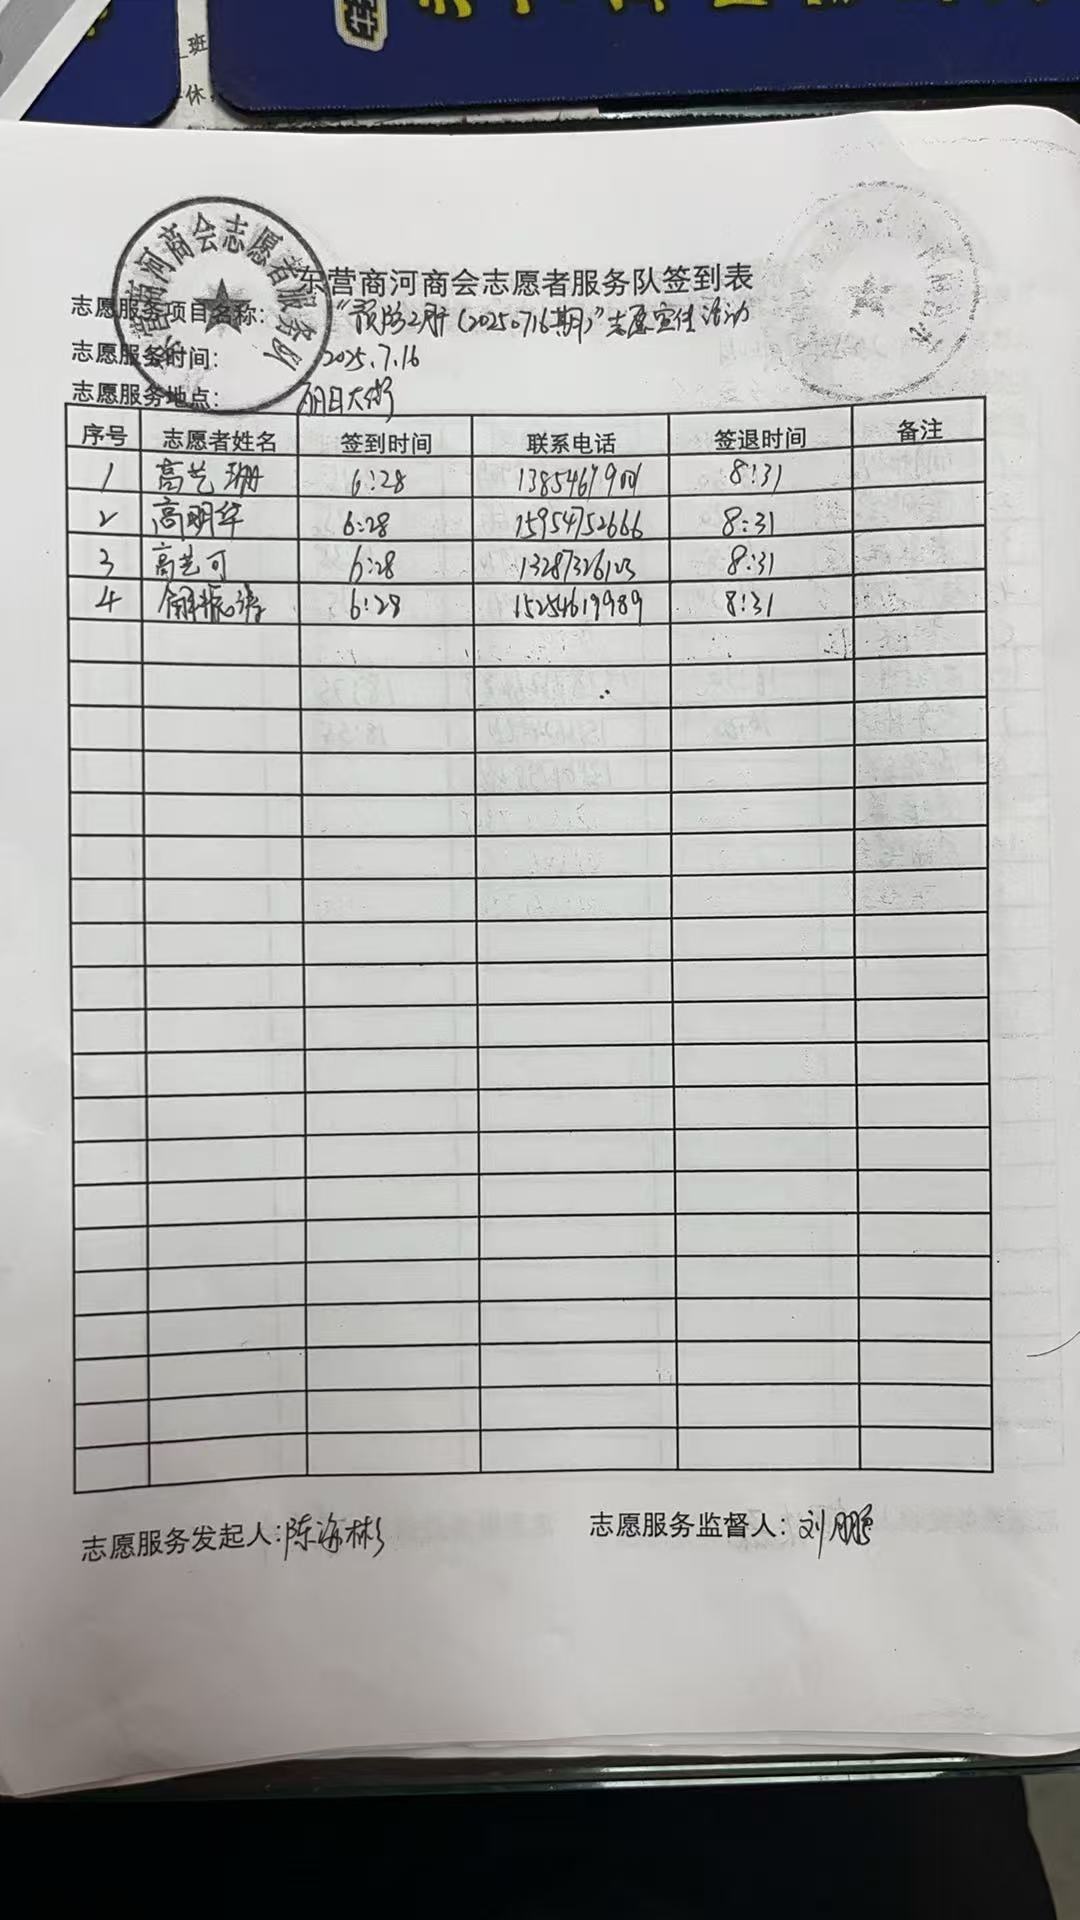 班
休
东营商河商会志愿者服务队
东营商河商会志愿者服务队签到表
志愿服务项目名称: "预防乙肝(20250716期)"志愿宣传活动
志愿服务时间: 2025.7.16
志愿服务地点: 明日大街
序号 志愿者姓名 签到时间 联系电话 签退时间 备注
1 高艺珊 6:28 8:31
2 高明华 6:28 15954752666 8:31
3 高艺可 6:28 13287326123 8:31
4 6:28 15254619989 8:31
志愿服务发起人:陈海彬 志愿服务监督人: 刘鹏